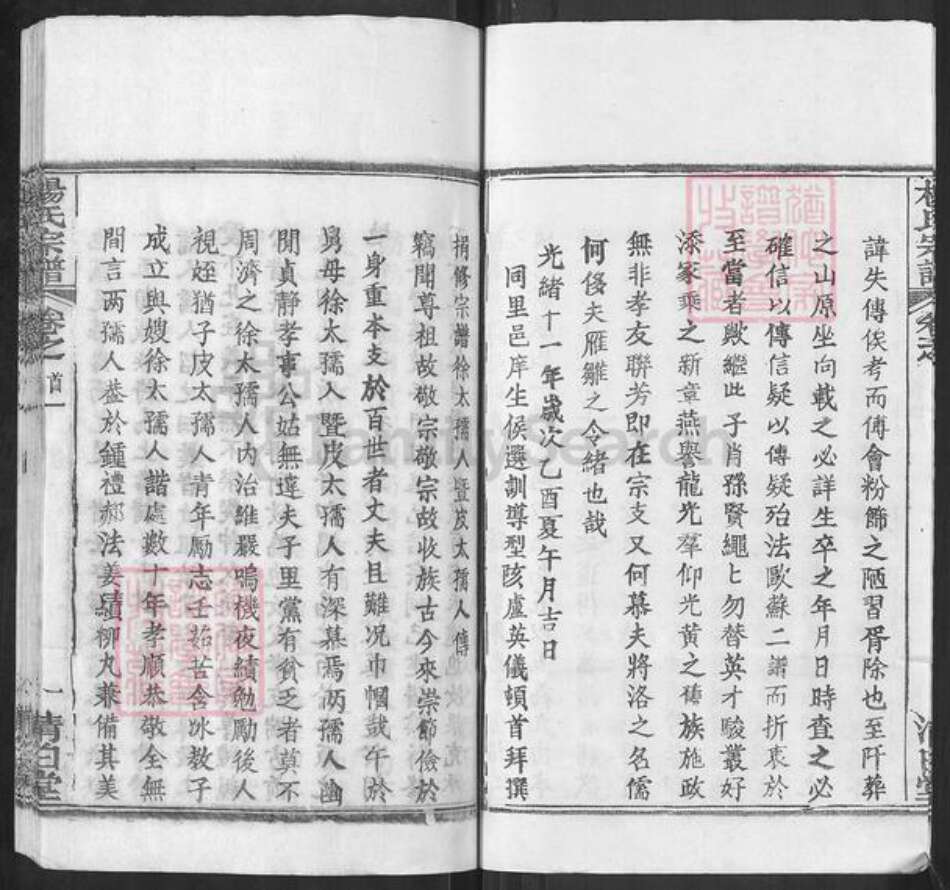 諱失傳俟考而傅會粉飾之陋習胥除也至阡葬
之山原坐向載之必詳生卒之年月日時查之必
確信以傳信疑以傳疑殆法歐蘇二譜而折衷於
至當者歟繼此子肖孫賢繩匕勿替英才駿叢好
添家乘之新章燕譽龍光羣仰光黄之舊族施政
無非孝友聯芳即在宗支又何慕夫將洛之名儒
何俊夫雁雛之令緒也哉
光緒十一年歲次乙酉夏午月吉日
同里邑庠生候選訓導型陔盧英儀頓首拜撰
楊氏宗譜 卷之首 一 清白堂
捐修宗譜徐太孺人暨皮太孺人傳
竊聞尊祖故敬宗敬宗故收族古今來崇節儉於
一身重本支於百世者丈夫且難况巾幗哉午於
舅母徐太孺人暨皮太孺人有深慕焉兩孺人幽
閒貞靜孝事公姑無違夫子里黨有貧乏者莫不
周濟之徐太孺人内治維嚴鳴機夜績勉勵後人
視姪猶子皮太孺人青年勵志荼苦含冰教子
成立與嫂徐太孺人諧處數十年孝順恭敬全無
間言兩孺人葢於鍾禮郝法姜績柳丸兼備其美